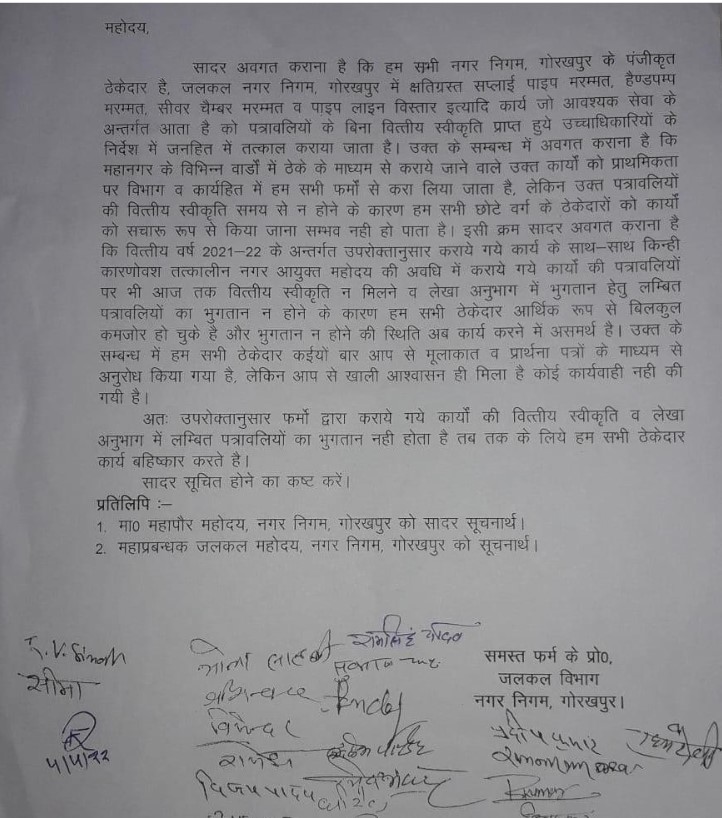 महोदय,
सादर अवगत कराना है कि हम सभी नगर निगम, गोरखपुर के पंजीकृत
ठेकेदार है, जलकल नगर निगम, गोरखपुर में क्षतिग्रस्त सप्लाई पाइप मरम्मत, हैण्डपम्प
मरम्मत, सीवर चैम्बर मरम्मत व पाइप लाइन विस्तार इत्यादि कार्य जो आवश्यक सेवा के
अन्तर्गत आता है को पत्रावलियों के बिना वित्तीय स्वीकृति प्राप्त हुये उच्चाधिकारियों के
निर्देश में जनहित में तत्काल कराया जाता है। उक्त के सम्बन्ध में अवगत कराना है कि
महानगर के विभिन्न वार्डो में ठेके के माध्यम से कराये जाने वाले उक्त कार्यो को प्राथमिकता
पर विभाग व कार्यहित में हम सभी फर्मो से करा लिया जाता है, लेकिन उक्त पत्रावलियों
की वित्तीय स्वीकृति समय से न होने के कारण हम सभी छोटे वर्ग के ठेकेदारों को कार्यो
को सचारू रूप से किया जाना सम्भव नही हो पाता है। इसी क्रम सादर अवगत कराना है
कि वित्तीय वर्ष 2021–22 के अन्तर्गत उपरोक्तानुसार कराये गये कार्य के साथ–साथ किन्ही
कारणोवश तत्कालीन नगर आयुक्त महोदय की अवधि में कराये गये कार्यो की पत्रावलियों
पर भी आज तक वित्तीय स्वीकृति न मिलने व लेखा अनुभाग में भुगतान हेतु लम्बित
पत्रावलियों का भुगतान न होने के कारण हम सभी ठेकेदार आर्थिक रूप से बिलकुल
कमजोर हो चुके है और भुगतान न होने की स्थिति अब कार्य करने में असमर्थ है। उक्त के
सम्बन्ध में हम सभी ठेकेदार कईयो बार आप से मूलाकात व प्रार्थना पत्रों के माध्यम से
अनुरोध किया गया है, लेकिन आप से खाली आश्वासन ही मिला है कोई कार्यवाही नही की
गयी है।
अतः उपरोक्तानुसार फर्मो द्वारा कराये गये कार्यो की वित्तीय स्वीकृति व लेखा
अनुभाग में लम्बित पत्रावलियों का भुगतान नही होता है तब तक के लिये हम सभी ठेकेदार
कार्य बहिष्कार करते है।
सादर सूचित होने का कष्ट करें।
प्रतिलिपि :–
1. मा0 महापौर महोदय, नगर निगम, गोरखपुर को सादर सूचनार्थ।
2. महाप्रबन्धक जलकल महोदय, नगर निगम, गोरखपुर को सूचनार्थ।
समस्त फर्म के प्रो0,
जलकल विभाग
नगर निगम, गोरखपुर।
सीमा
4/4/22